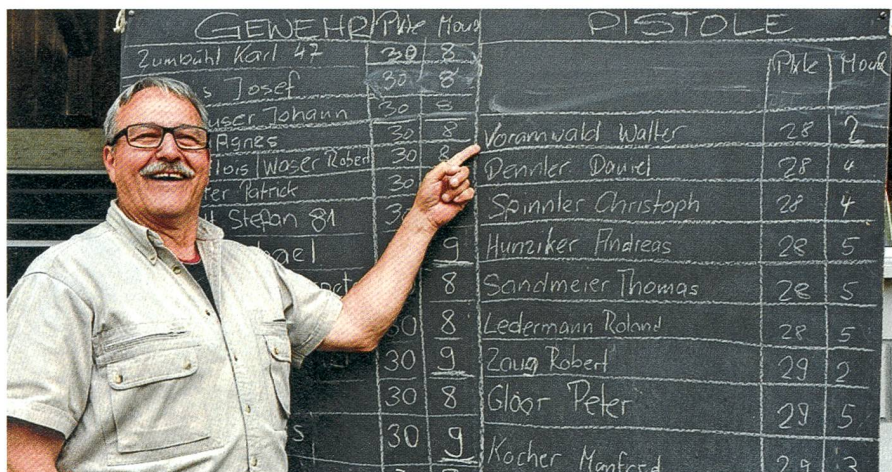 GEWEHR Pkte Mouch
Zumbühl Karl 47 30 8
Josef 30 8
user Johann 30 8
Agnes 30 8
lois Waser Robert 30 8
er Patrick 30
Stefan 81
ael 9
8
30 8
30 9
30 8
s 30 9
PISTOLE
Pkte Mouch
Voramwald Walter 28 2
Dennler Daniel 28 4
Spinnler Christoph 28 4
Hunziker Andreas 28 5
Sandmeier Thomas 28 5
Ledermann Roland 28 5
Zaug Robert 29 2
Gloor Peter 29 5
Kocher Manfred 29 3